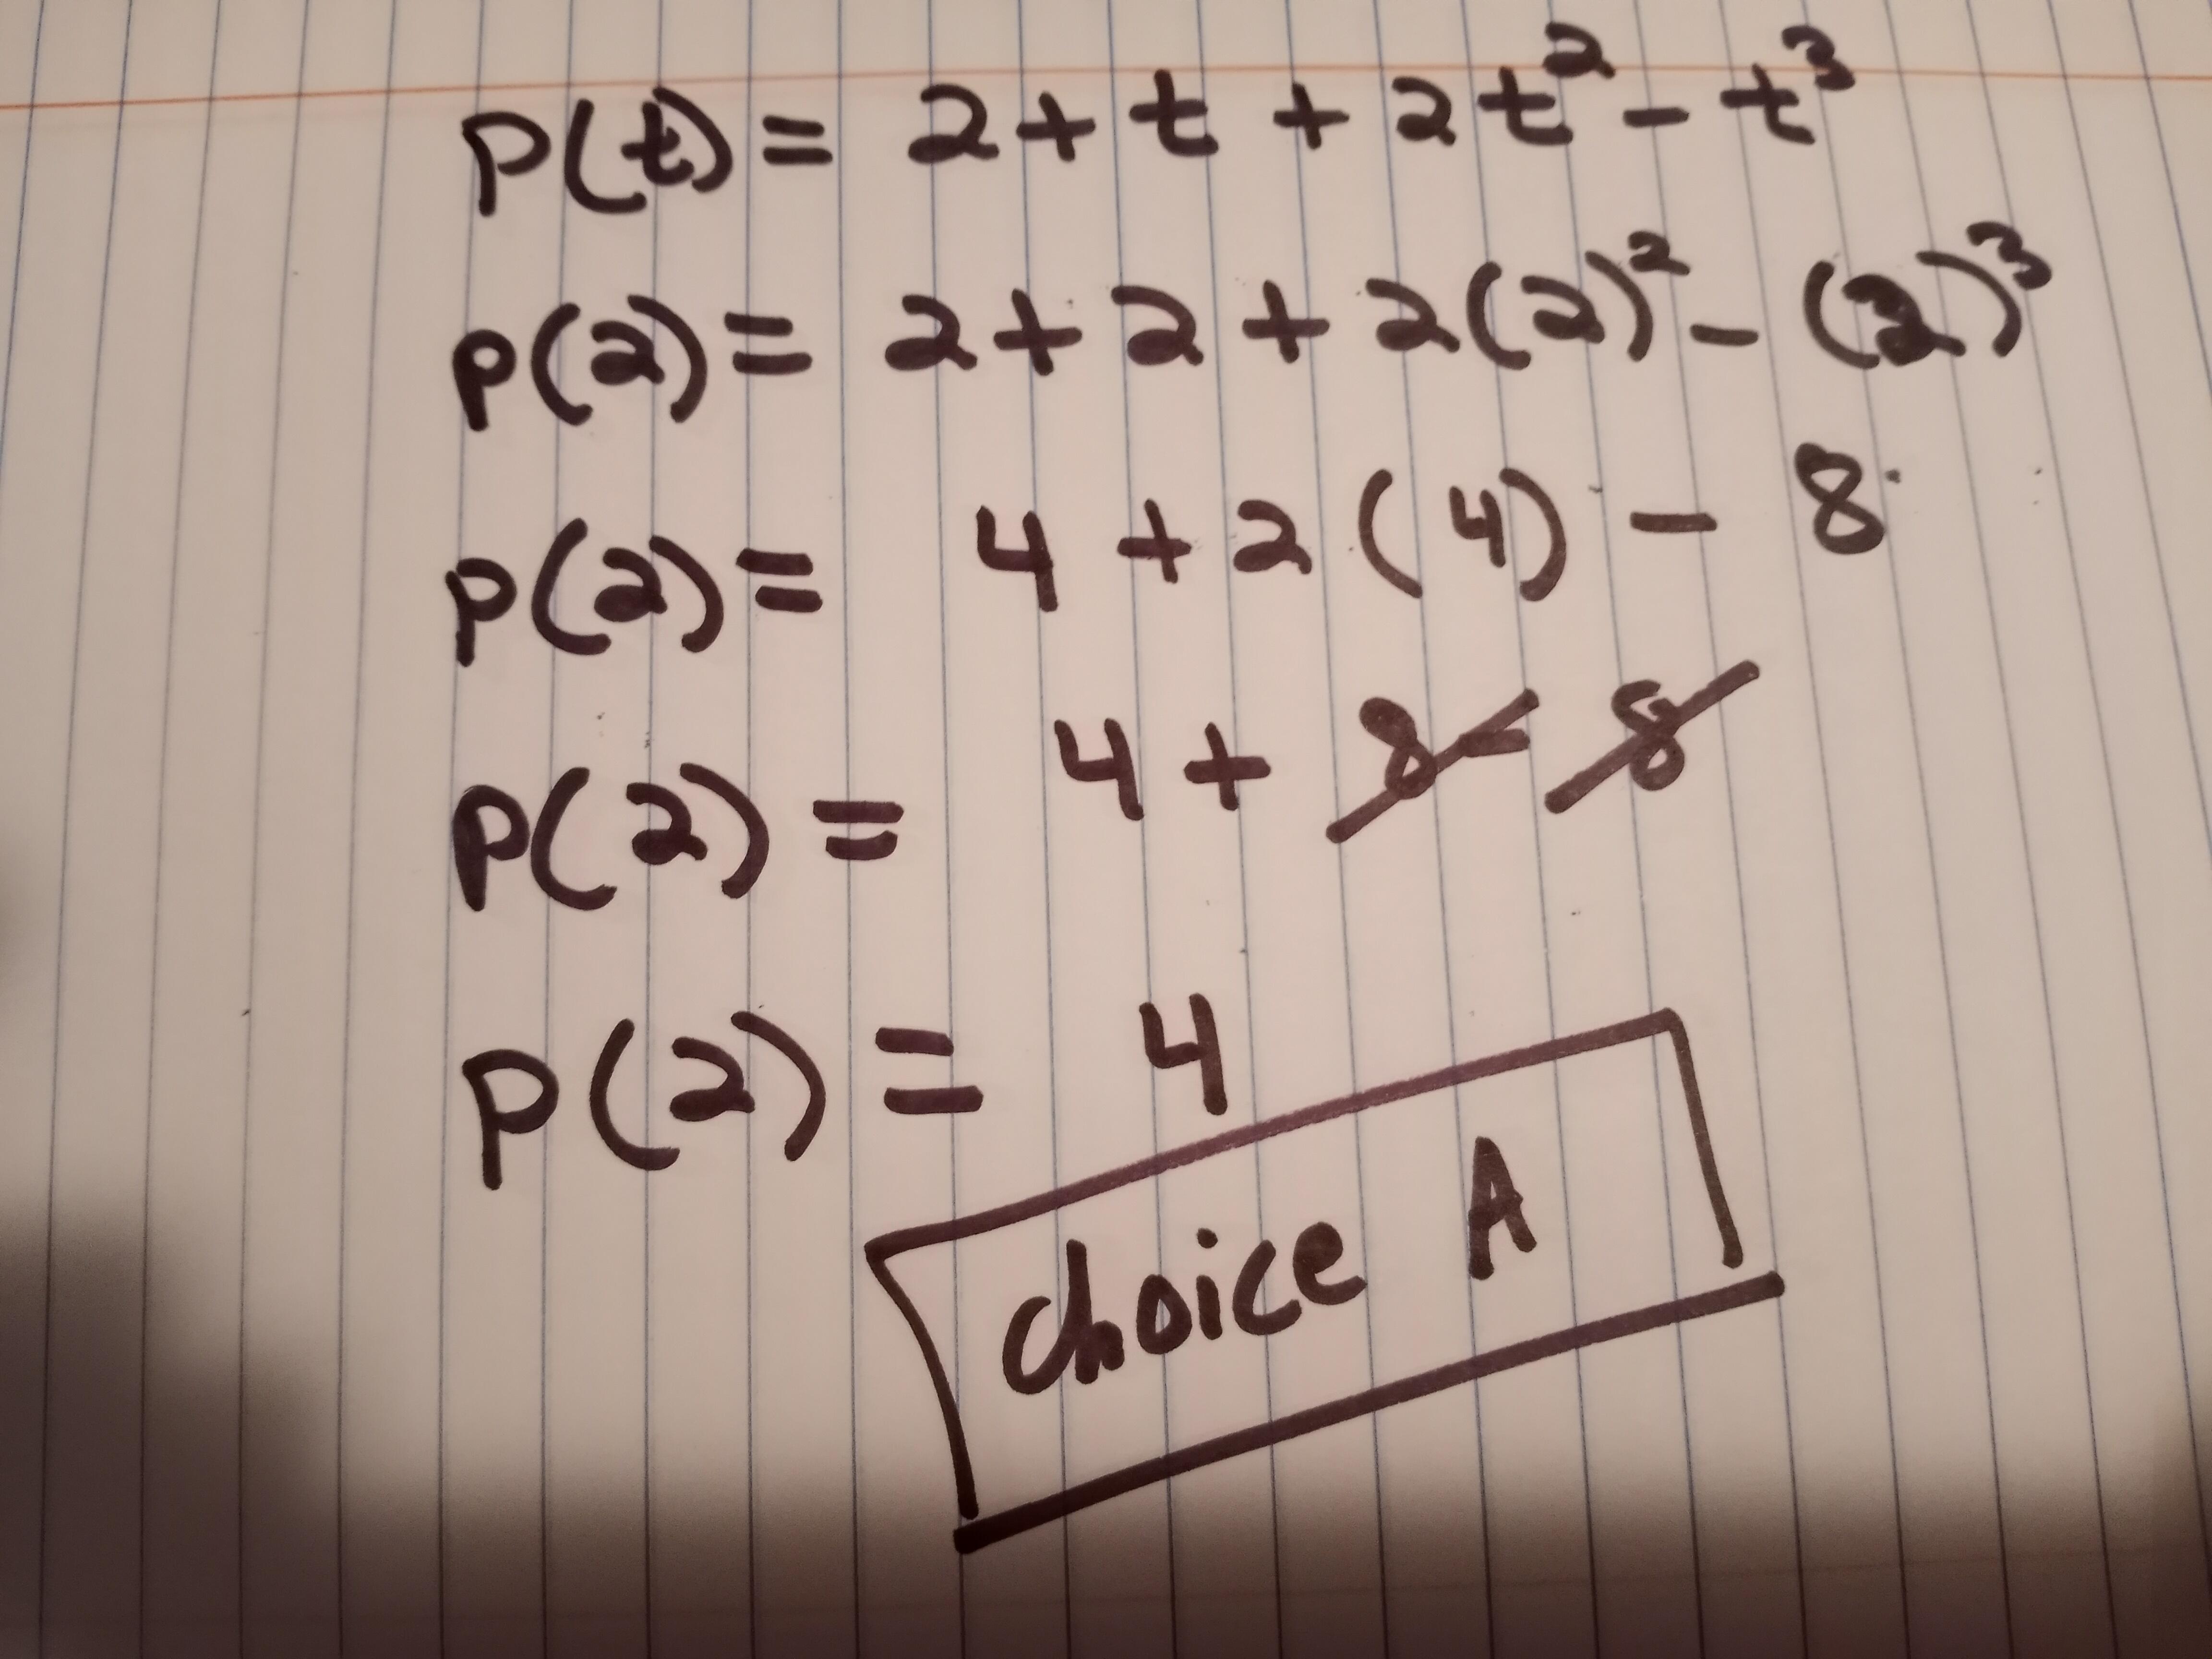 P(t) = 2 + t + 2t² - t³
P(2) = 2 + 2 + 2(2)² - (2)³
P(2) = 4 + 2(4) - 8
P(2) = 4 + 8 - 8
P(2) = 4
choice A